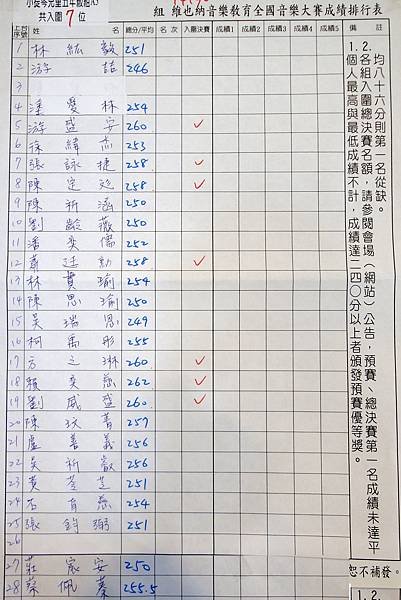 共入圍7位
組 維也納音樂教育全國音樂大賽成績排行表
上台序號 姓名 總分/平均 名次 入圍決賽 成績1 成績2 成績3 成績4 成績5 備註
1 林 毅 251
2 游 喆 246
4 潘愛林 254
5 游盛安 260 ✓
6 徐緯 253
7 張詠捷 258 ✓
8 陳定 258 ✓
9 陳祈涵 250
10 劉齡薇 250
11 潘奕儒 252
12 蕭廷勳 258 ✓
13 林貫瑜 254
14 陳思瑜 250
15 吳瑞恩 249
16 柯禹彤 255
17 方之琳 260 ✓
18 賴奕 262 ✓
19 劉威盛 260 ✓
20 陳玟菁 257
21 盧善義 256
22 吳祈叡 256
23 黃 芝 251
24 育慈 254
25 張鈞 251
26
27 莊宸安 250
28 蔡佩蓁 255.5
1. 各組入圍總決賽名額，請參閱會場（網站）公告，預賽、總決賽第一名成績未達平均八十六分則第一名從缺。
2. 個人最高與最低成績不計，成績達二四〇分以上者頒發預賽優等獎。
恕不補發。
1.2.